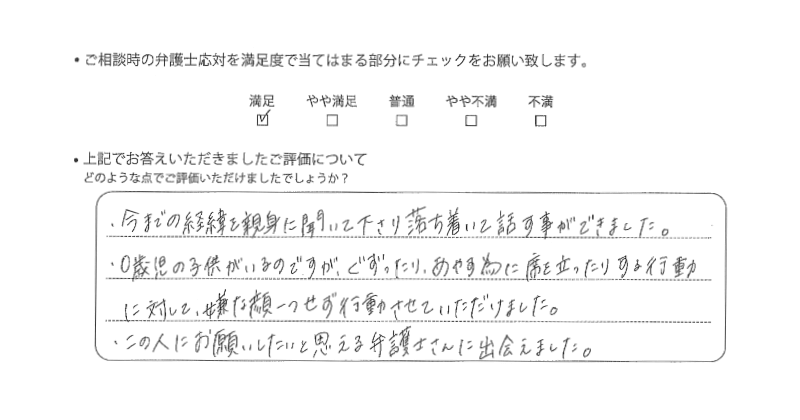 • ご相談時の弁護士応対を満足度で当てはまる部分にチェックをお願い致します。
満足 やや満足 普通 やや不満 不満
☑ □ □ □ □
• 上記でお答えいただきましたご評価について
どのような点でご評価いただけましたでしょうか？
・今までの経緯を親身に聞いて下さり落ち着いて話す事ができました。
・0歳児の子供がいるのですが、ぐずったり、あやす為に席を立ったりする行動
に対して、嫌な顔一つせず行動させていただけました。
・この人にお願いしたいと思える弁護士さんに出会えました。